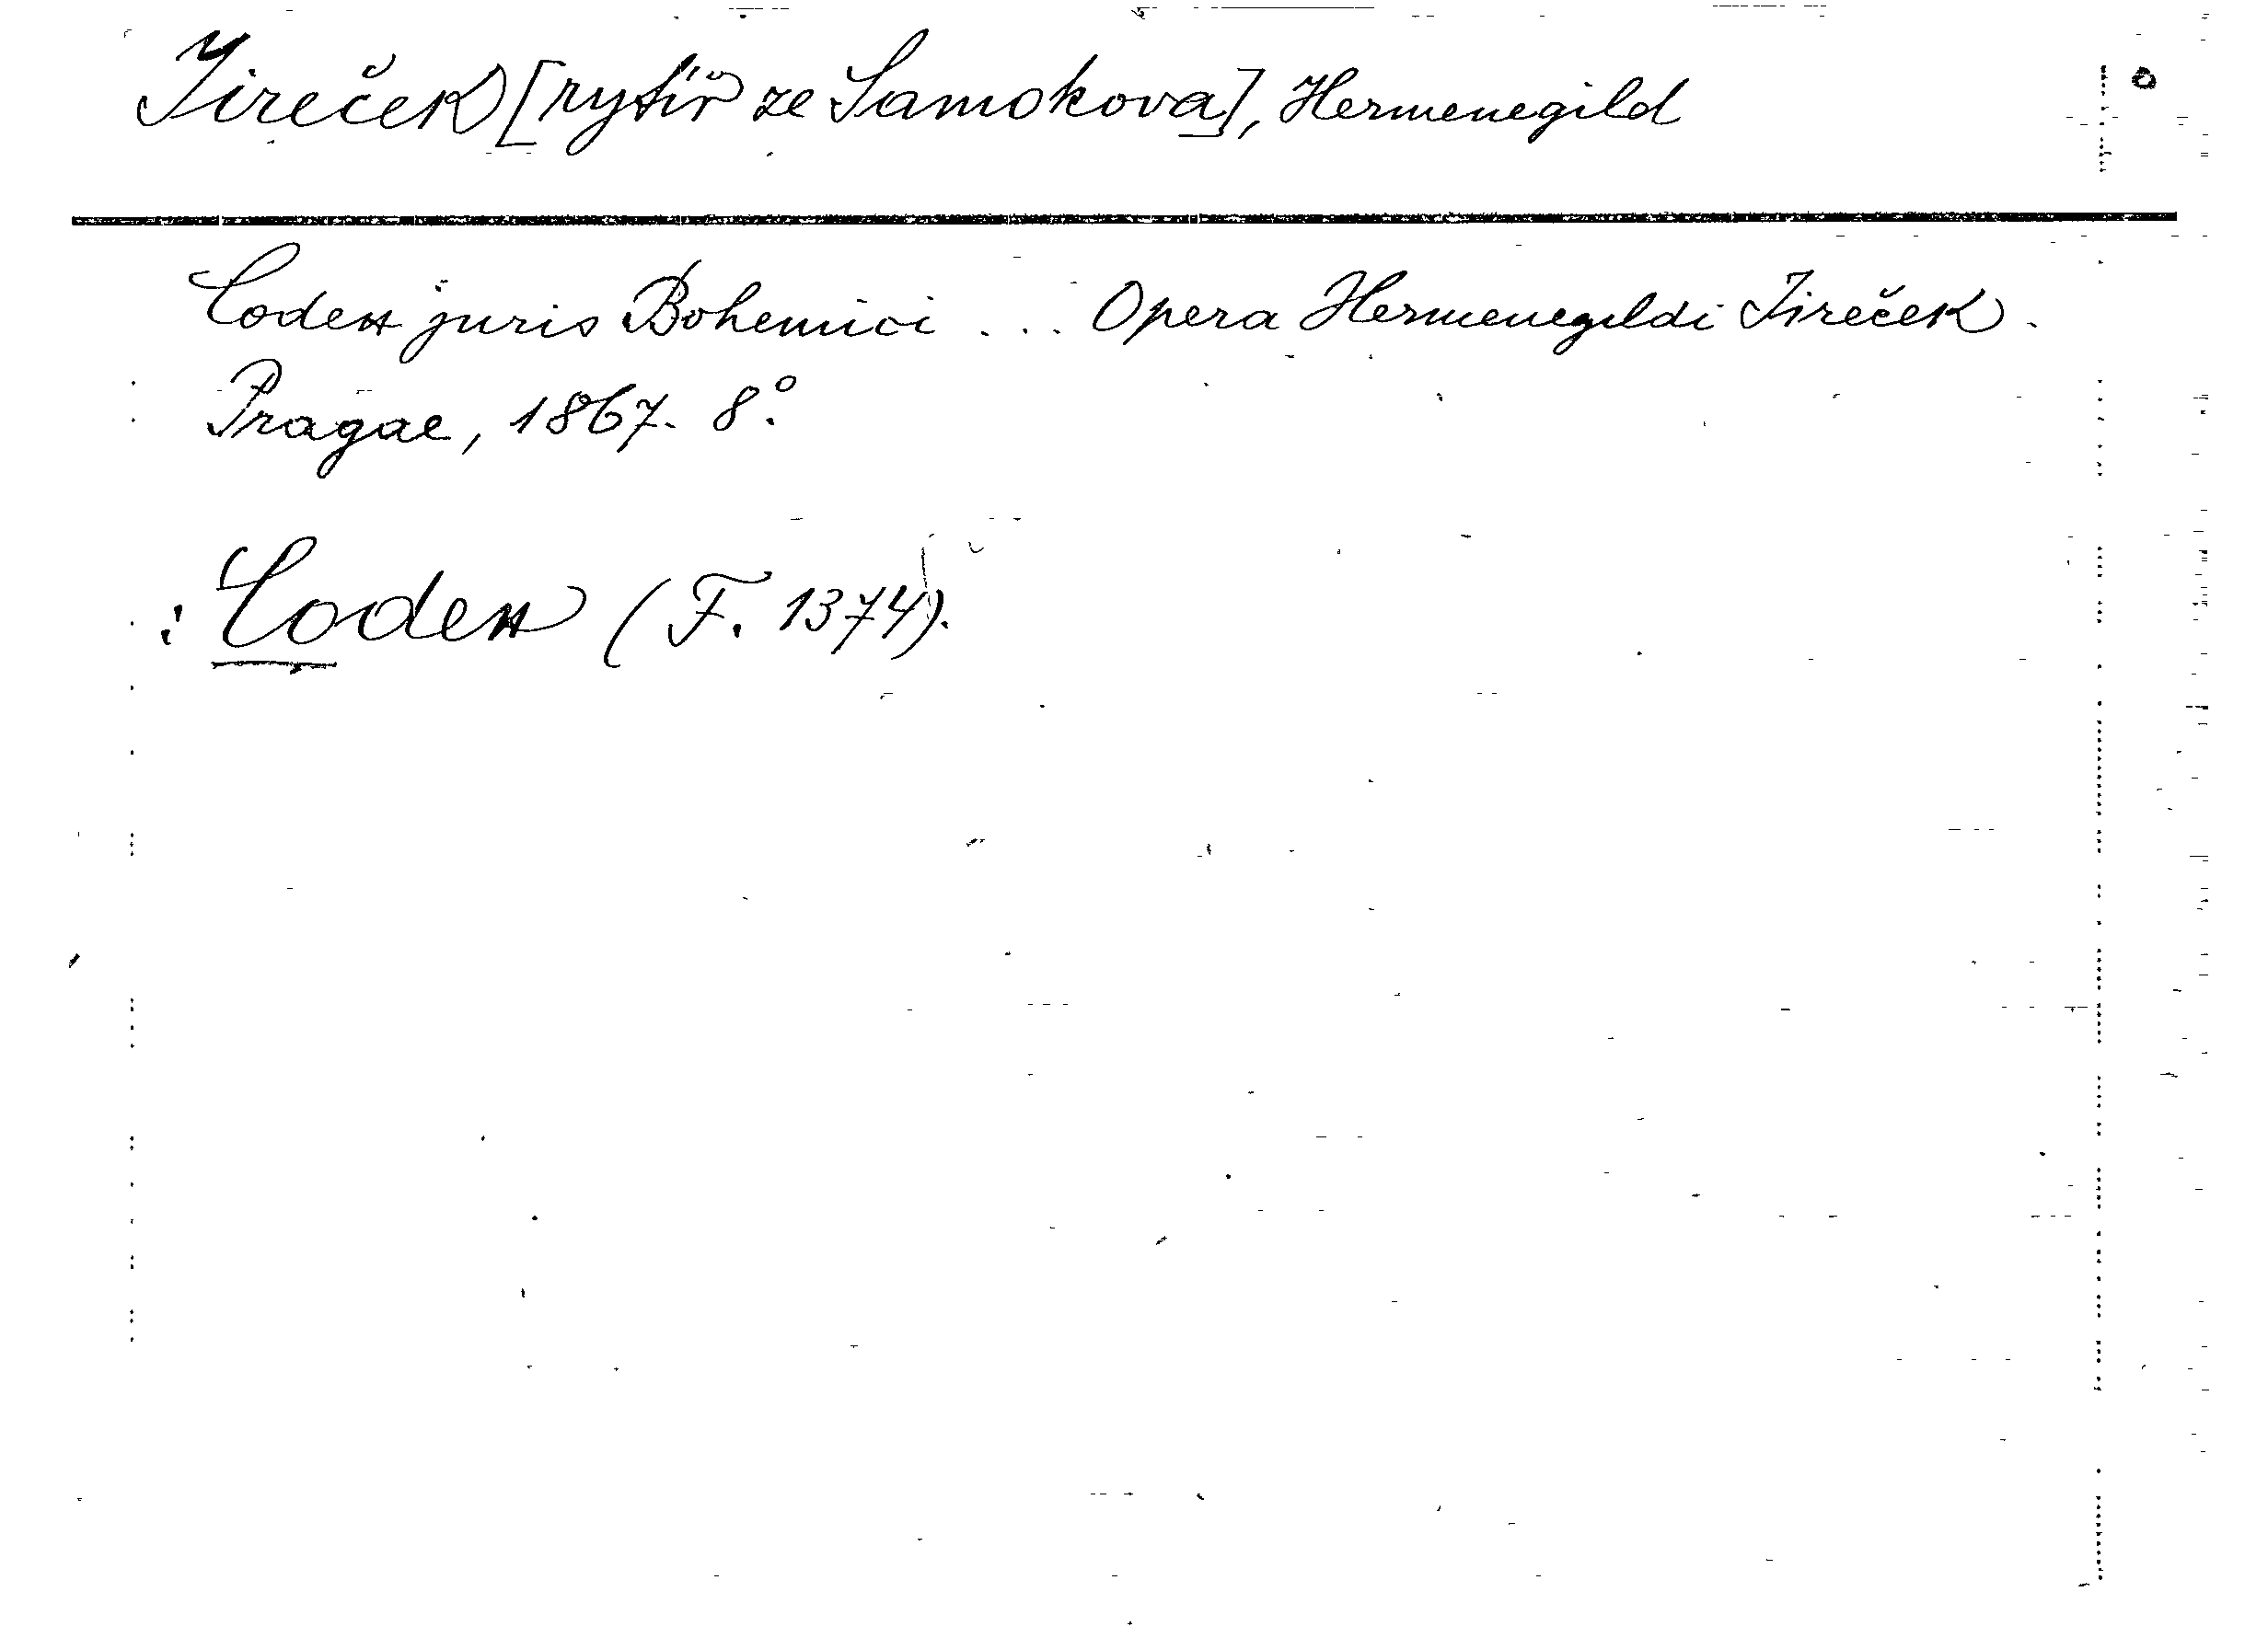 Jireček [rytíř ze Samokova], Hermenegild
Codex juris Bohemici ... Opera Hermenegildi Jireček.
Pragae, 1867. 8°.
: Codex (F. 1374).